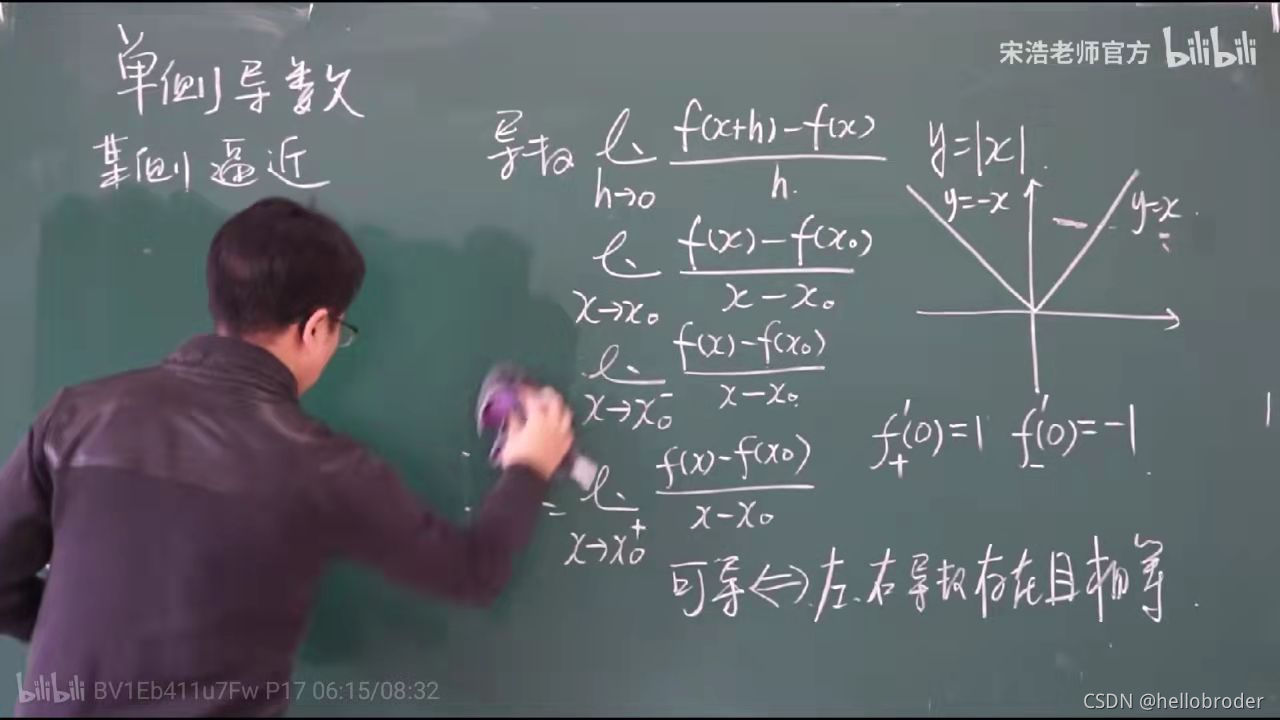 单侧导数
某侧逼近
宋浩老师官方 bilibili
导数 lim h→0 f(x+h)-f(x) / h
lim x→x₀ f(x)-f(x₀) / x-x₀
lim x→x₀⁻ f(x)-f(x₀) / x-x₀
= lim x→x₀⁺ f(x)-f(x₀) / x-x₀
y=|x|
y=-x
y=x
f'₊(0)=1 f'₋(0)=-1
可导⇔左、右导数存在且相等
bilibili BV1Eb411u7Fw P17 06:15/08:32
CSDN @hellobroder